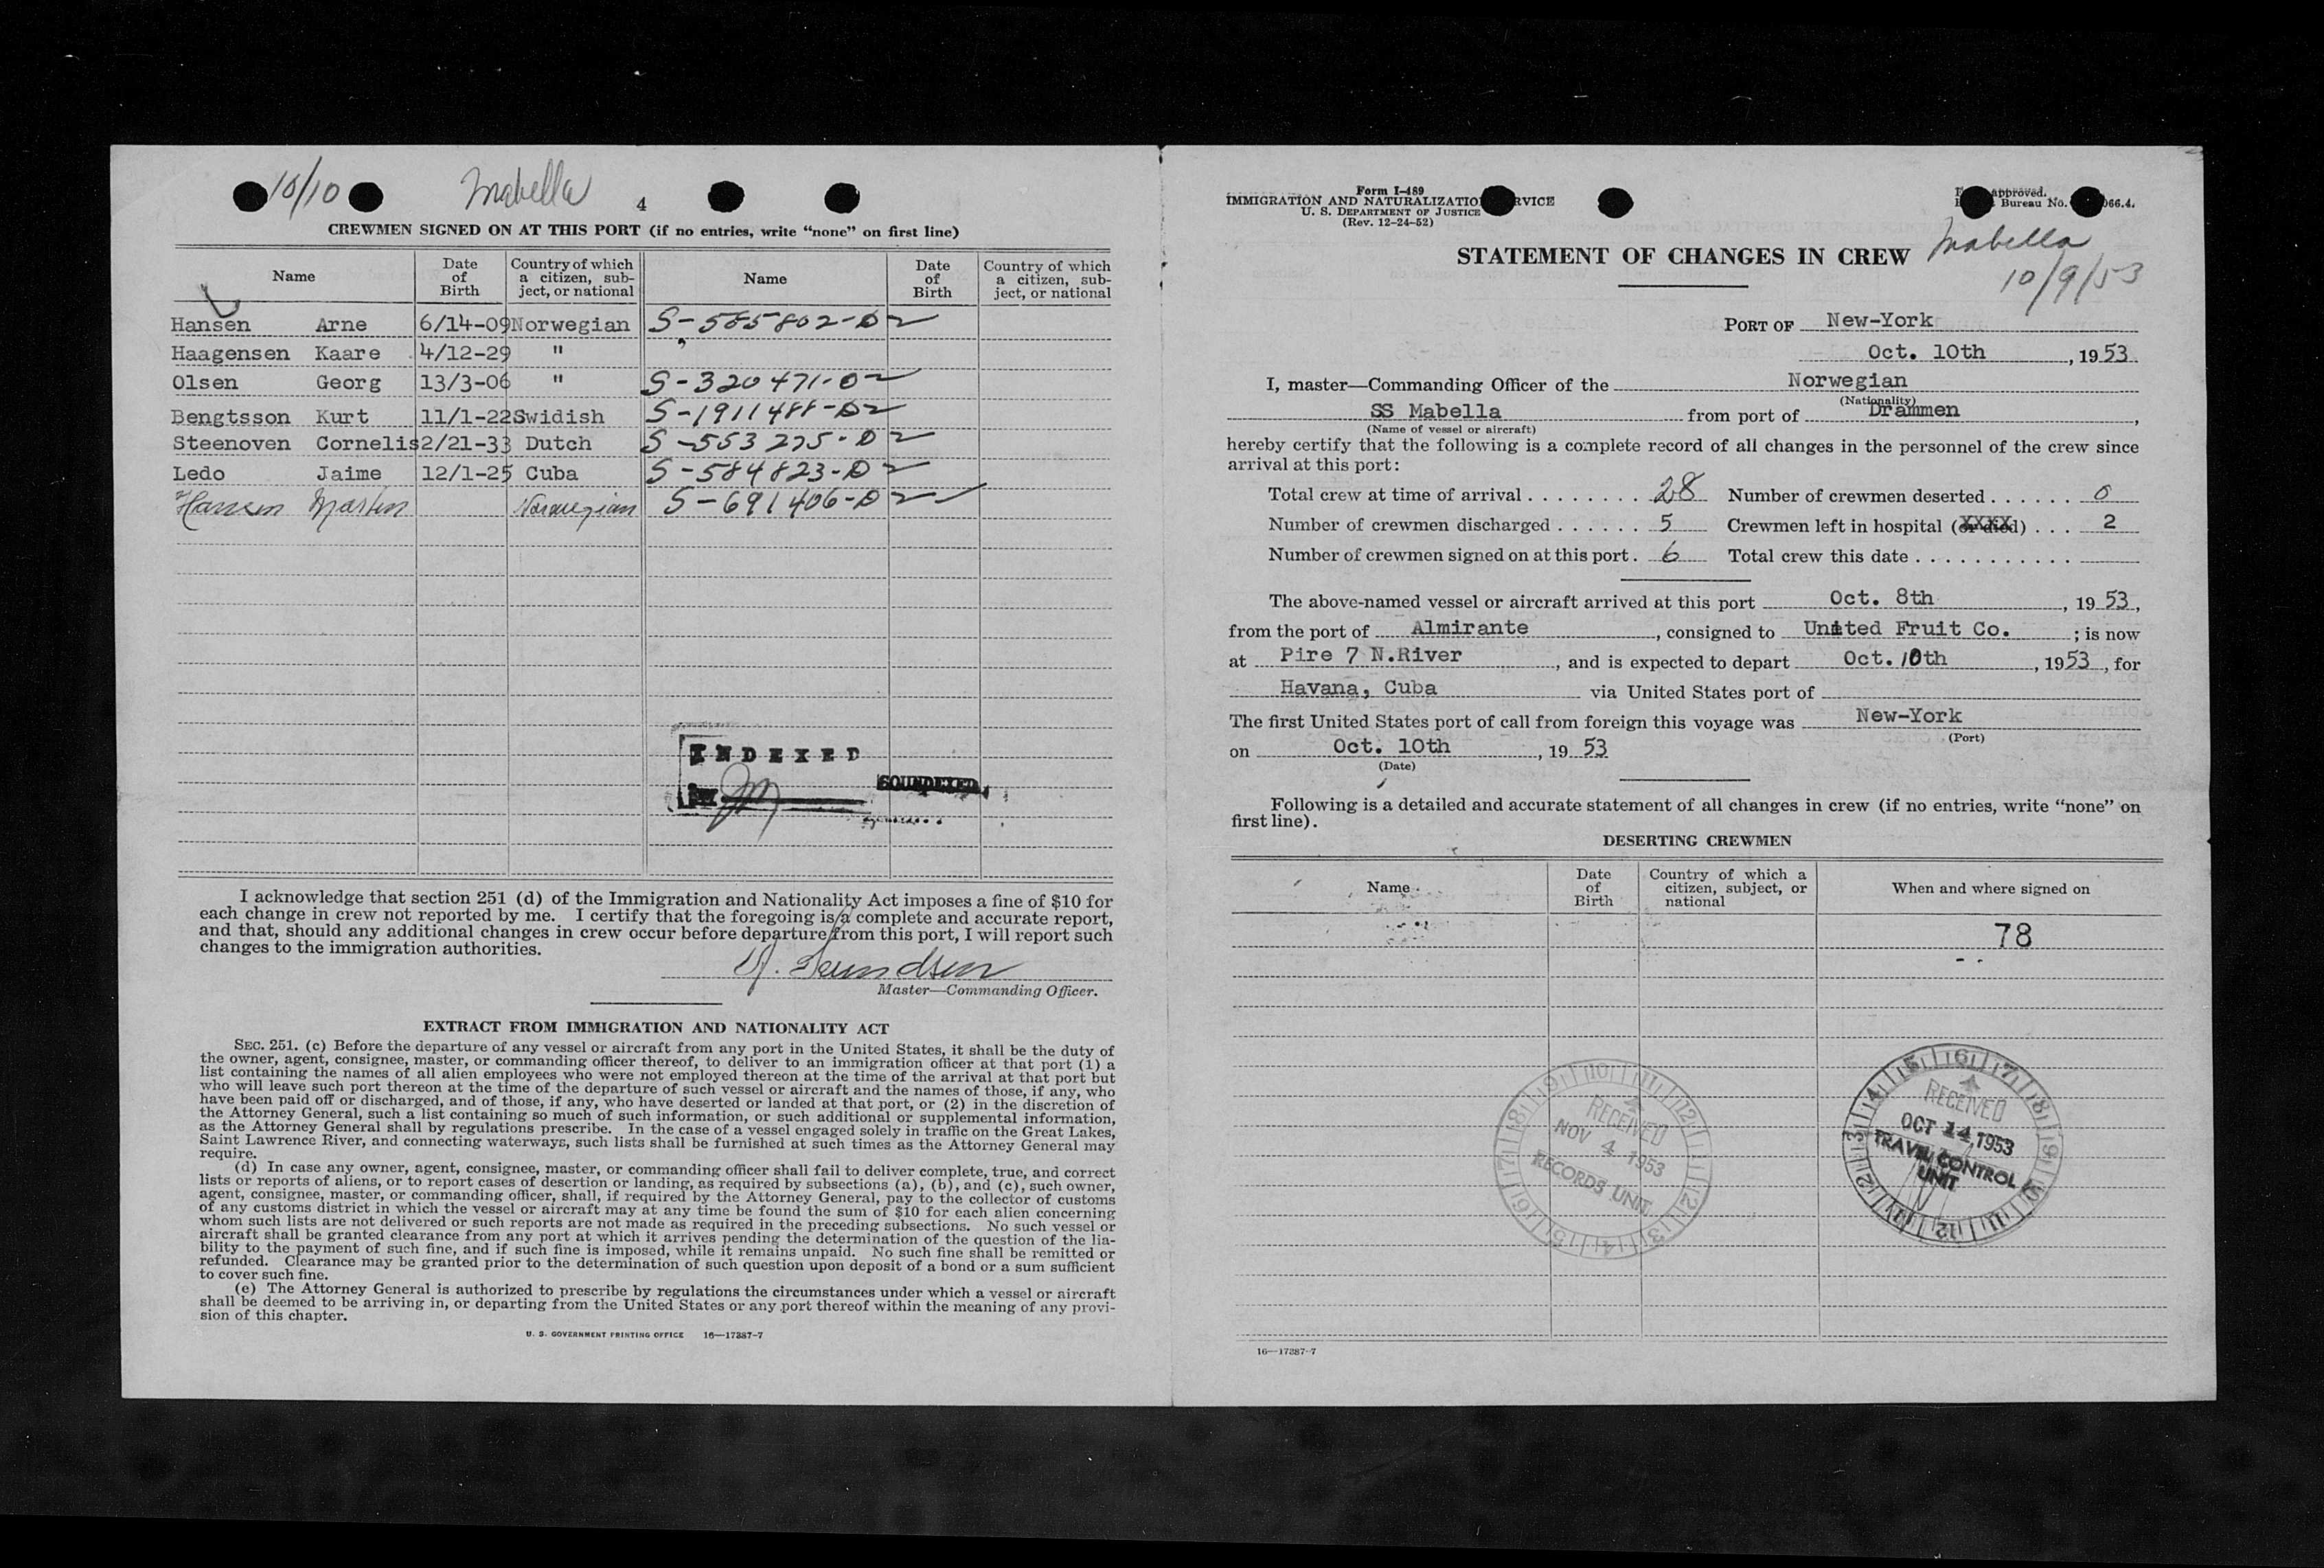 10/10 Mabella 4
CREWMEN SIGNED ON AT THIS PORT (if no entries, write “none” on first line)
Name Date of Birth Country of which a citizen, sub-ject, or national Name Date of Birth Country of which a citizen, sub-ject, or national
Hansen Arne 6/14-09 Norwegian S-585802-D2
Haagensen Kaare 4/12-29 "
Olsen Georg 13/3-06 " S-320471-D2
Bengtsson Kurt 11/1-22 Swidish S-1911488-D2
Steenoven Cornelis 2/21-33 Dutch S-553275-D2
Ledo Jaime 12/1-25 Cuba S-584823-D2
Hansen Martin Norwegian S-691406-D2
INDEXED
SOUNDEXED
I acknowledge that section 251 (d) of the Immigration and Nationality Act imposes a fine of $10 for
each change in crew not reported by me. I certify that the foregoing is a complete and accurate report,
and that, should any additional changes in crew occur before departure from this port, I will report such
changes to the immigration authorities.
Master—Commanding Officer.
EXTRACT FROM IMMIGRATION AND NATIONALITY ACT
SEC. 251. (c) Before the departure of any vessel or aircraft from any port in the United States, it shall be the duty of
the owner, agent, consignee, master, or commanding officer thereof, to deliver to an immigration officer at that port (1) a
list containing the names of all alien employees who were not employed thereon at the time of the arrival at that port but
who will leave such port thereon at the time of the departure of such vessel or aircraft and the names of those, if any, who
have been paid off or discharged, and of those, if any, who have deserted or landed at that port, or (2) in the discretion of
the Attorney General, such a list containing so much of such information, or such additional or supplemental information,
as the Attorney General shall by regulations prescribe. In the case of a vessel engaged solely in traffic on the Great Lakes,
Saint Lawrence River, and connecting waterways, such lists shall be furnished at such times as the Attorney General may
require.
(d) In case any owner, agent, consignee, master, or commanding officer shall fail to deliver complete, true, and correct
lists or reports of aliens, or to report cases of desertion or landing, as required by subsections (a), (b), and (c), such owner,
agent, consignee, master, or commanding officer, shall, if required by the Attorney General, pay to the collector of customs
of any customs district in which the vessel or aircraft may at any time be found the sum of $10 for each alien concerning
whom such lists are not delivered or such reports are not made as required in the preceding subsections. No such vessel or
aircraft shall be granted clearance from any port at which it arrives pending the determination of the question of the lia-
bility to the payment of such fine, and if such fine is imposed, while it remains unpaid. No such fine shall be remitted or
refunded. Clearance may be granted prior to the determination of such question upon deposit of a bond or a sum sufficient
to cover such fine.
(e) The Attorney General is authorized to prescribe by regulations the circumstances under which a vessel or aircraft
shall be deemed to be arriving in, or departing from the United States or any port thereof within the meaning of any provi-
sion of this chapter.
U. S. GOVERNMENT PRINTING OFFICE 16—17387-7
Form I-489
IMMIGRATION AND NATURALIZATION SERVICE
U. S. DEPARTMENT OF JUSTICE
(Rev. 12-24-52)
approved.
Bureau No. 066.4.
STATEMENT OF CHANGES IN CREW Mabella
10/9/53
PORT OF New-York
Oct. 10th, 1953
I, master—Commanding Officer of the Norwegian
(Nationality)
SS Mabella from port of Drammen,
(Name of vessel or aircraft)
hereby certify that the following is a complete record of all changes in the personnel of the crew since
arrival at this port:
Total crew at time of arrival . . . . . . . . 28 Number of crewmen deserted . . . . . . 0
Number of crewmen discharged . . . . . . 5 Crewmen left in hospital (or died) . . . 2
Number of crewmen signed on at this port . 6 Total crew this date . . . . . . . . . . .
The above-named vessel or aircraft arrived at this port Oct. 8th, 1953,
from the port of Almirante, consigned to United Fruit Co. ; is now
at Pire 7 N.River, and is expected to depart Oct. 10th, 1953, for
Havana, Cuba via United States port of
The first United States port of call from foreign this voyage was New-York
(Port)
on Oct. 10th, 1953
(Date)
Following is a detailed and accurate statement of all changes in crew (if no entries, write “none” on
first line).
DESERTING CREWMEN
Name Date of Birth Country of which a citizen, subject, or national When and where signed on
78
RECEIVED
NOV 4 1953
RECORDS UNIT
RECEIVED
OCT 14 1953
TRAVEL CONTROL
UNIT
16—17387-7